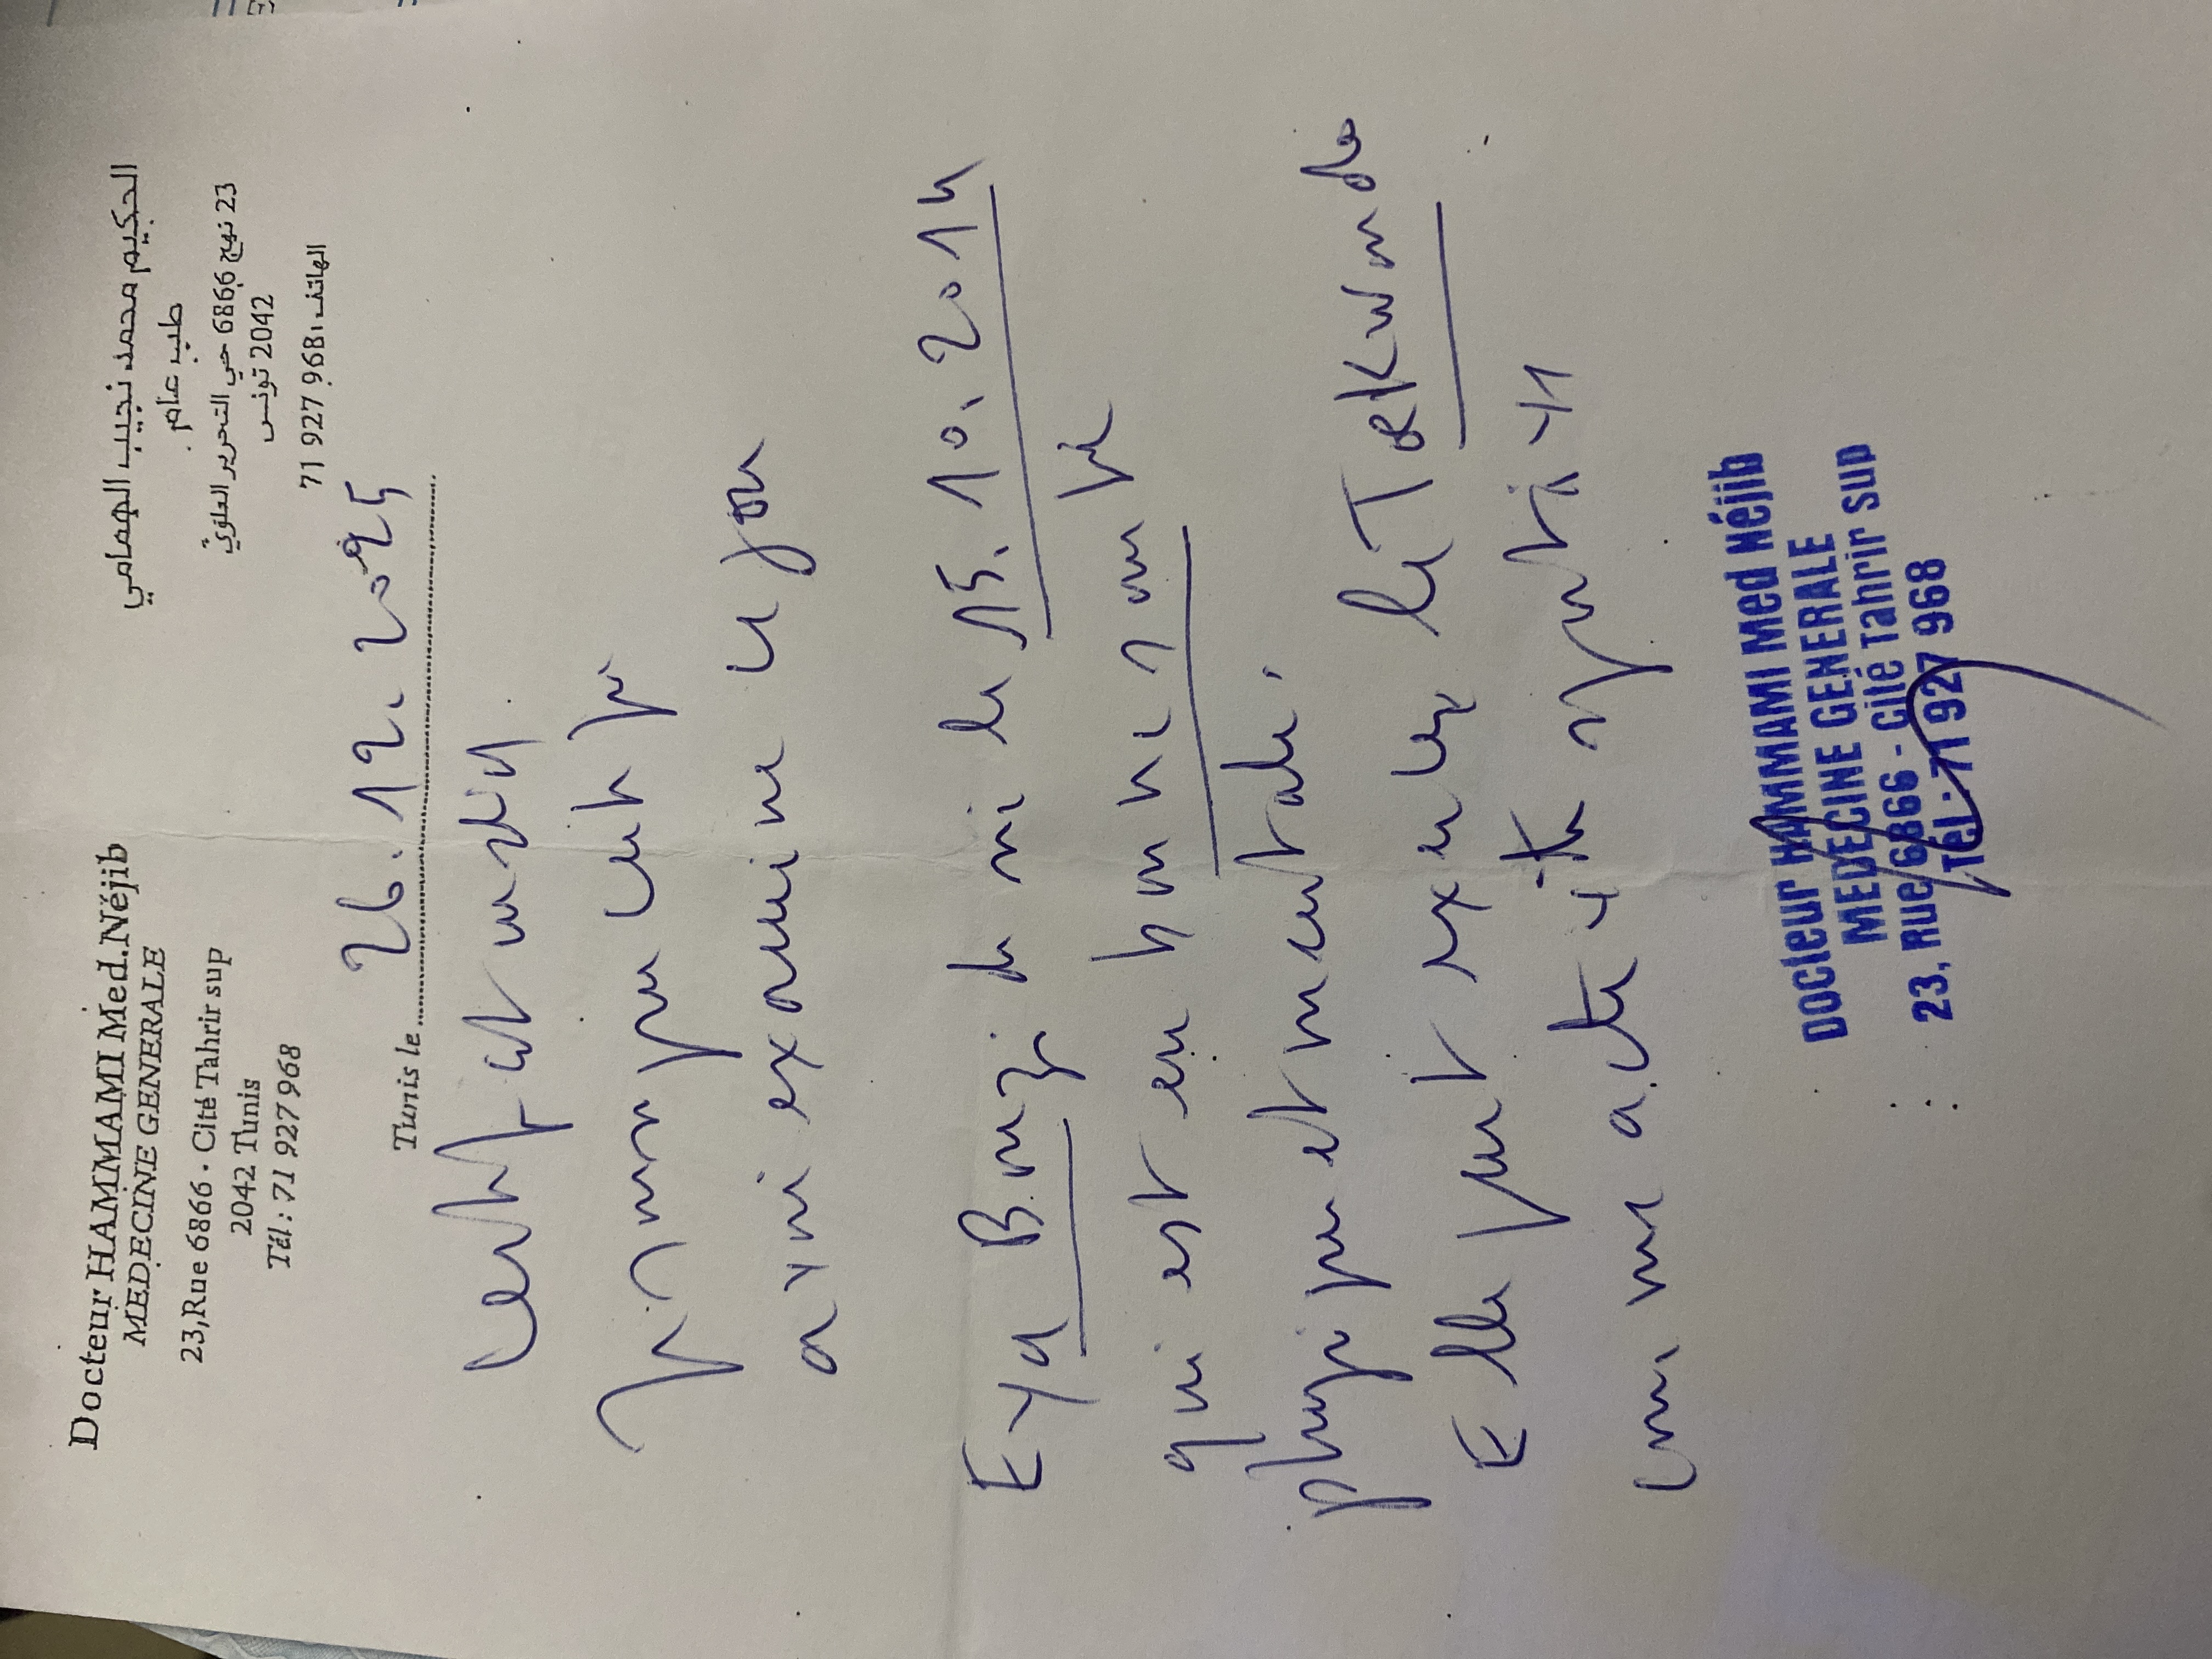 Docteur HAMMAMI Med.Néjib
MEDECINE GENERALE
23,Rue 6866 - Cité Tahrir sup
2042 Tunis
Tél : 71 927 968
الحكيم محمد نجيب الهمامي
طبيب عام
23 نهج 6866 حي التحرير العلوي
2042 تونس
الهاتف : 71 927 968
Tunis le 26.12.2025
Certificat médical
Je soussigné certifie
avoir examiné ce jour
Eya née le 15.10.2014
qui est en bonne santé
physique et mentale.
Elle peut exercer le Taekwondo
comme activité sportive
Docteur HAMMAMI Med Néjib
MEDECINE GENERALE
23, Rue 6866 - Cité Tahrir sup
Tél : 71 927 968